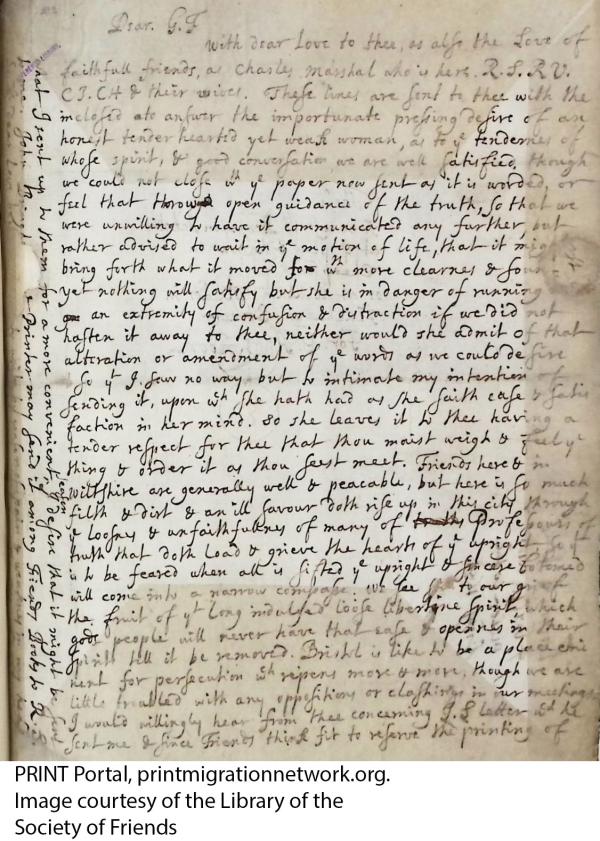 Dear. G.F
With dear Love to thee, as also the Love of
faithfull friends, as Charles Marshal who is here. R.S. R.V.
C.J. CH & their wives. These lines are sent to thee with the
inclosed to answer the importunate pressing desire of an
honest tender hearted yet weak woman, as to ye tendernes of
whose spirit, & good conversation we are well satisfied, though
we could not close wth ye paper now sent as it is worded, or
feel that open guidance of the truth, so that we
were unwilling to have it communicated any further, but
rather advised to wait in ye motion of life, that it mig
bring forth what it moved for wth more clearnes &
yet nothing will satisfy but she is in danger of running
an extremity of confusion & distraction if we did not
hasten it away to thee, neither would she admit of that
alteration or amendment of ye words as we could desire
So yt I saw no way but to intimate my intention of
sending it, upon wch she hath had as she saith ease & satis
faction in her mind. So she leaves it to thee having a
tender respect for thee that thou maist weigh & feel ye
thing & order it as thou seest meet. Friends here & in
Wiltshire are generally well & peacable, but here is so much
filth & dirt & an ill savour doth rise up in this city through
ye loosnes & unfaithfullnes of many of Professours of
truth that doth load & grieve the hearts of ye upright
is to be feared when all is sifted ye upright & sincere
will come into a narrow compasse. We see to our grief
the fruit of yt long indulged loose libertine spirit, which
good people will never have that ease & opennes in their
spirits till it be removed. Bristol is like to be a place
nent for persecution wch ripens more & more, though we are
little troubled with any oppositions or clashings in our meetings
I would willingly hear from thee concerning J.S letter wch he
sent me & since Friends think fit to reserve the printing of
that I sent up to them for a more convenient season, I desire that it might be
ye Printer may send it among Friends Books to
PRINT Portal, printmigrationnetwork.org.
Image courtesy of the Library of the
Society of Friends